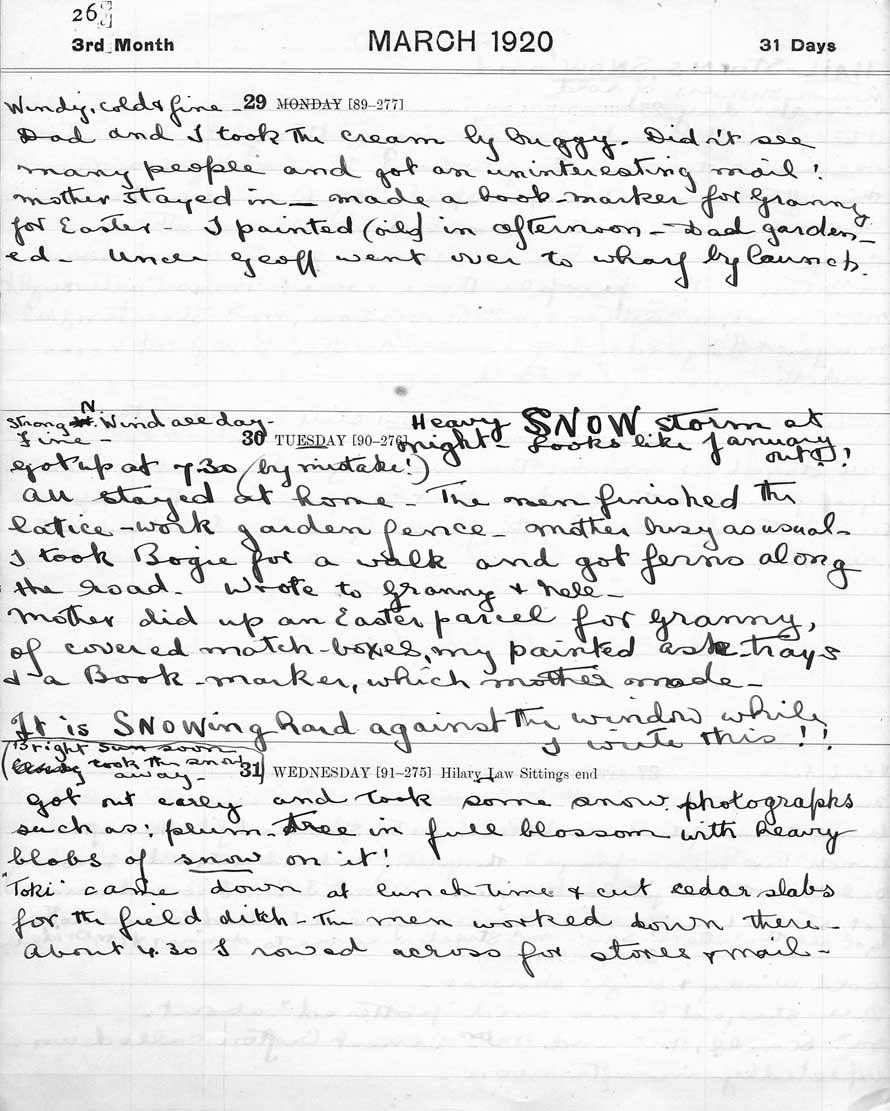 26
3rd Month MARCH 1920 31 Days
Windy, cold & fine - 29 MONDAY [89-277]
Dad and I took the cream by buggy. Didn't see
many people and got an uninteresting mail!
Mother stayed in - made a book-marker for Granny
for Easter - I painted (oils) in afternoon - Dad garden-
ed - Uncle Geoff went over to wharf by launch.
Strong N. Wind all day -
Fine -
30 TUESDAY [90-276]
Heavy SNOW storm at
night - Looks like January
out!!
Got up at 7.30 (by mistake!)
All stayed at home - The men finished the
latice-work garden fence - Mother busy as usual -
I took Bogie for a walk and got ferns along
the road. Wrote to Granny & Nell -
Mother did up an Easter parcel for Granny,
of covered match-boxes, my painted ash-trays
& a Book-marker, which mother made -
It is SNOWing hard against the window while
I write this!!
(Bright sun soon
took the snow
away -
31 WEDNESDAY [91-275] Hilary Law Sittings end
Got out early and took some snow photographs
such as: plum-tree in full blossom with heavy
blobs of snow on it!
"Toki" came down at lunch time & cut cedar slabs
for the field ditch - The men worked down there -
About 4.30 I rowed across for stores & mail -